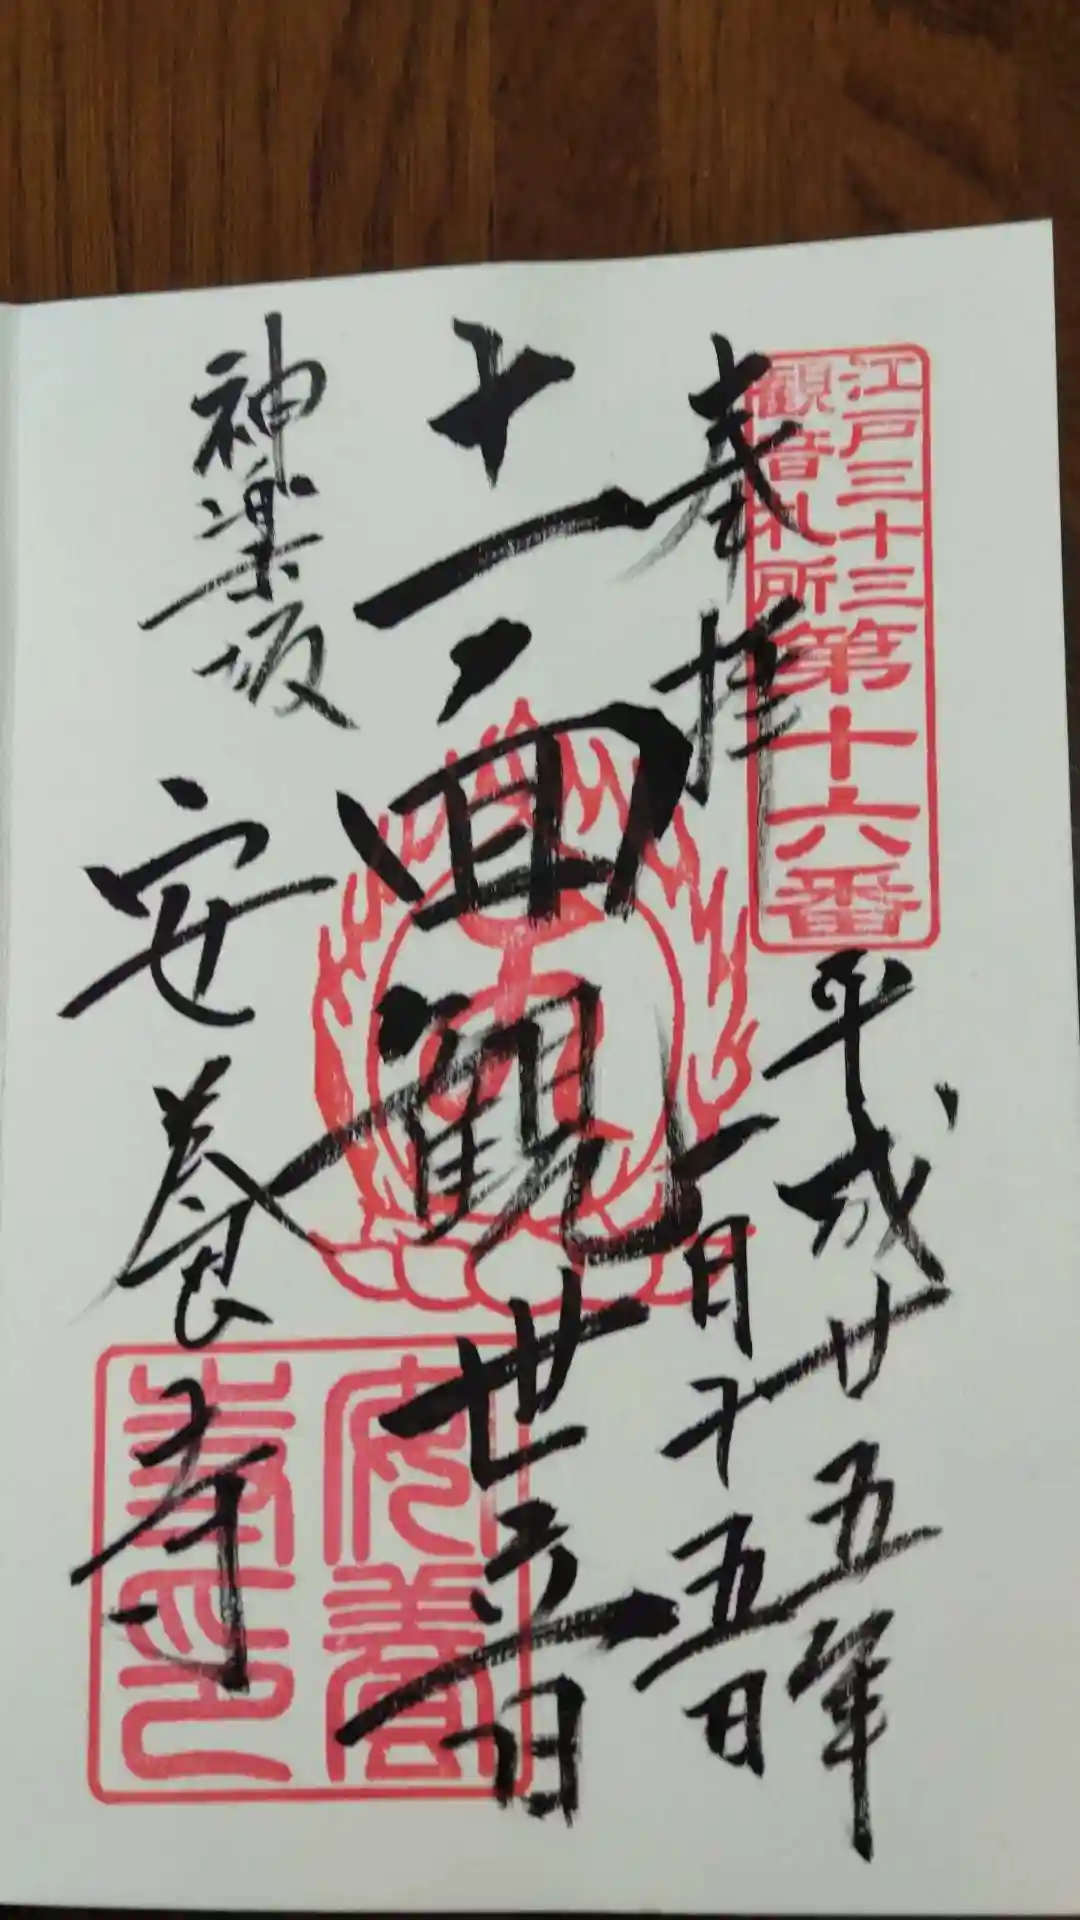 江戸三十三
観音札所
第十六番
奉拝
平成廿五年
一月十五日
十一面観世音
神楽坂
安養寺
安養
寺印